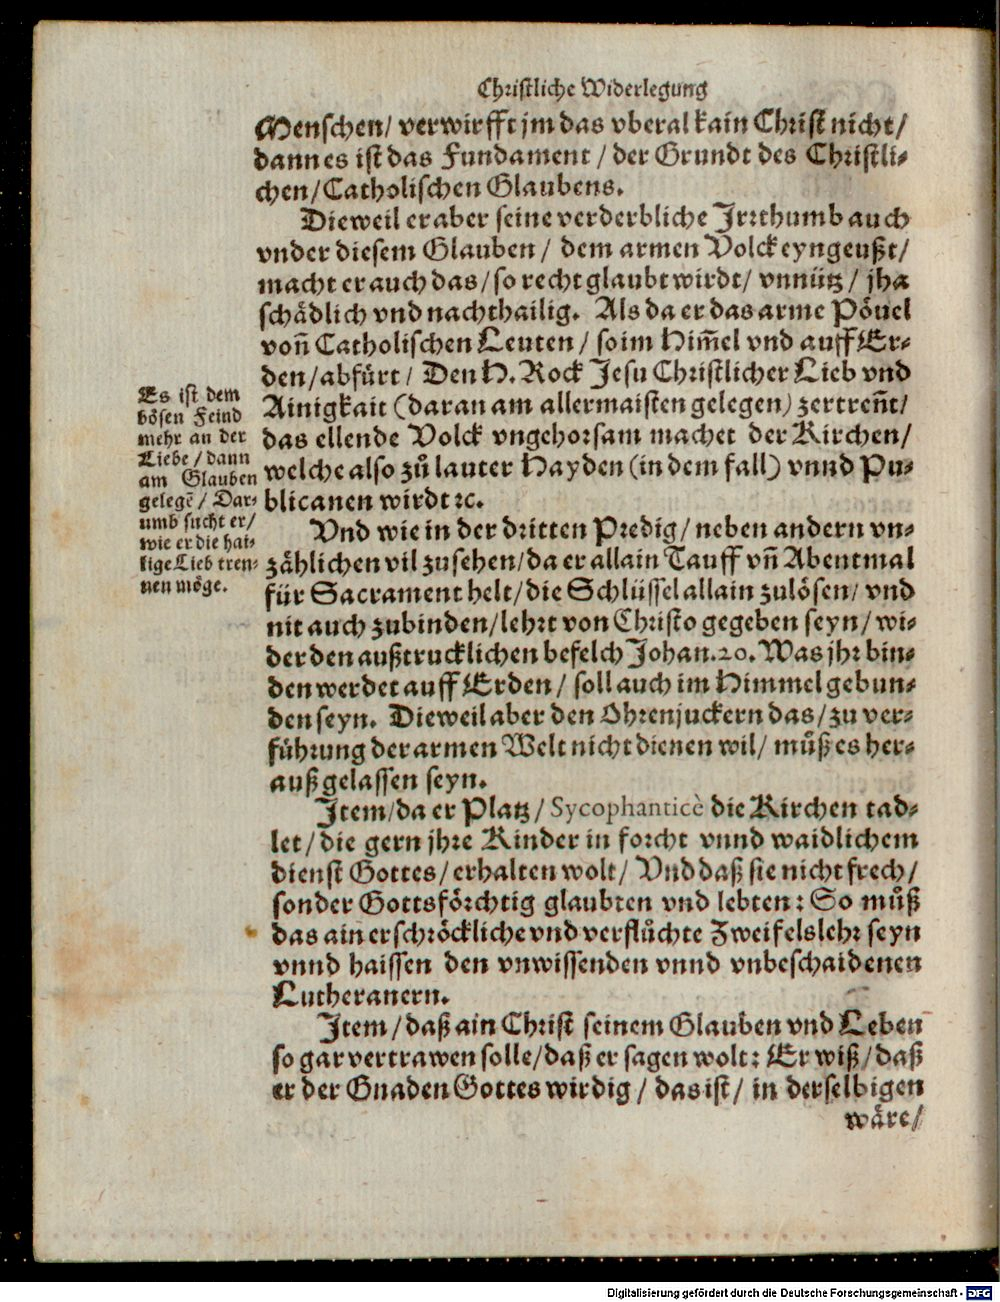 Christliche Widerlegung
Menschen/ verwirfft jm das vberal kain Christ nicht/
dann es ist das Fundament / der Grundt des Christli-
chen/ Catholischen Glaubens.
Dieweil er aber seine verderbliche Jrrthumb auch
vnder diesem Glauben / dem armen Volck eyngeußt/
macht er auch das/ so recht glaubt wirdt/ vnnütz / jha
schådlich vnd nachthailig. Als da er das arme Pôuel
von̄ Catholischen Leuten / so im Him̄el vnd auff Er-
den/ abfürt / Den H. Rock Jesu Christlicher Lieb vnd
Ainigkait (daran am allermaisten gelegen) zertren̄t/
das ellende Volck vngehorsam machet der Kirchen/
welche also zů lauter Hayden (in dem fall) vnnd Pu-
blicanen wirdt ꝛc.
Es ist dem
bösen Feind
mehr an der
Liebe / dann
am Glauben
gelegē / Dar-
umb sucht er/
wie er die hai-
lige Lieb tren-
nen möge.
Vnd wie in der dritten Predig/ neben andern vn-
zåhlichen vil zusehen/ da er allain Tauff vn̄ Abentmal
für Sacrament helt/ die Schlüssel allain zulôsen/ vnd
nit auch zubinden/ lehrt von Christo gegeben seyn/ wi-
der den außtrucklichen befelch Johan. 20. Was jhr bin-
den werdet auff Erden / soll auch im Himmel gebun-
den seyn. Dieweil aber den Ohrenjuckern das/ zu ver-
führung der armen Welt nicht dienen wil/ můß es her-
auß gelassen seyn.
Jtem/ da er Platz / Sycophanticè die Kirchen tad-
let / die gern jhre Kinder in forcht vnnd waidlichem
dienst Gottes/ erhalten wolt/ Vnd daß sie nicht frech/
sonder Gottsförchtig glaubten vnd lebten: So můß
das ain erschröckliche vnd verflůchte Zweifelslehr seyn
vnnd haissen den vnwissenden vnnd vnbeschaidenen
Lutheranern.
Jtem / daß ain Christ seinem Glauben vnd Leben
so gar vertrawen solle/ daß er sagen wolt: Er wiß/ daß
er der Gnaden Gottes wirdig / das ist / in derselbigen
wåre/
Digitalisierung gefördert durch die Deutsche Forschungsgemeinschaft - DFG